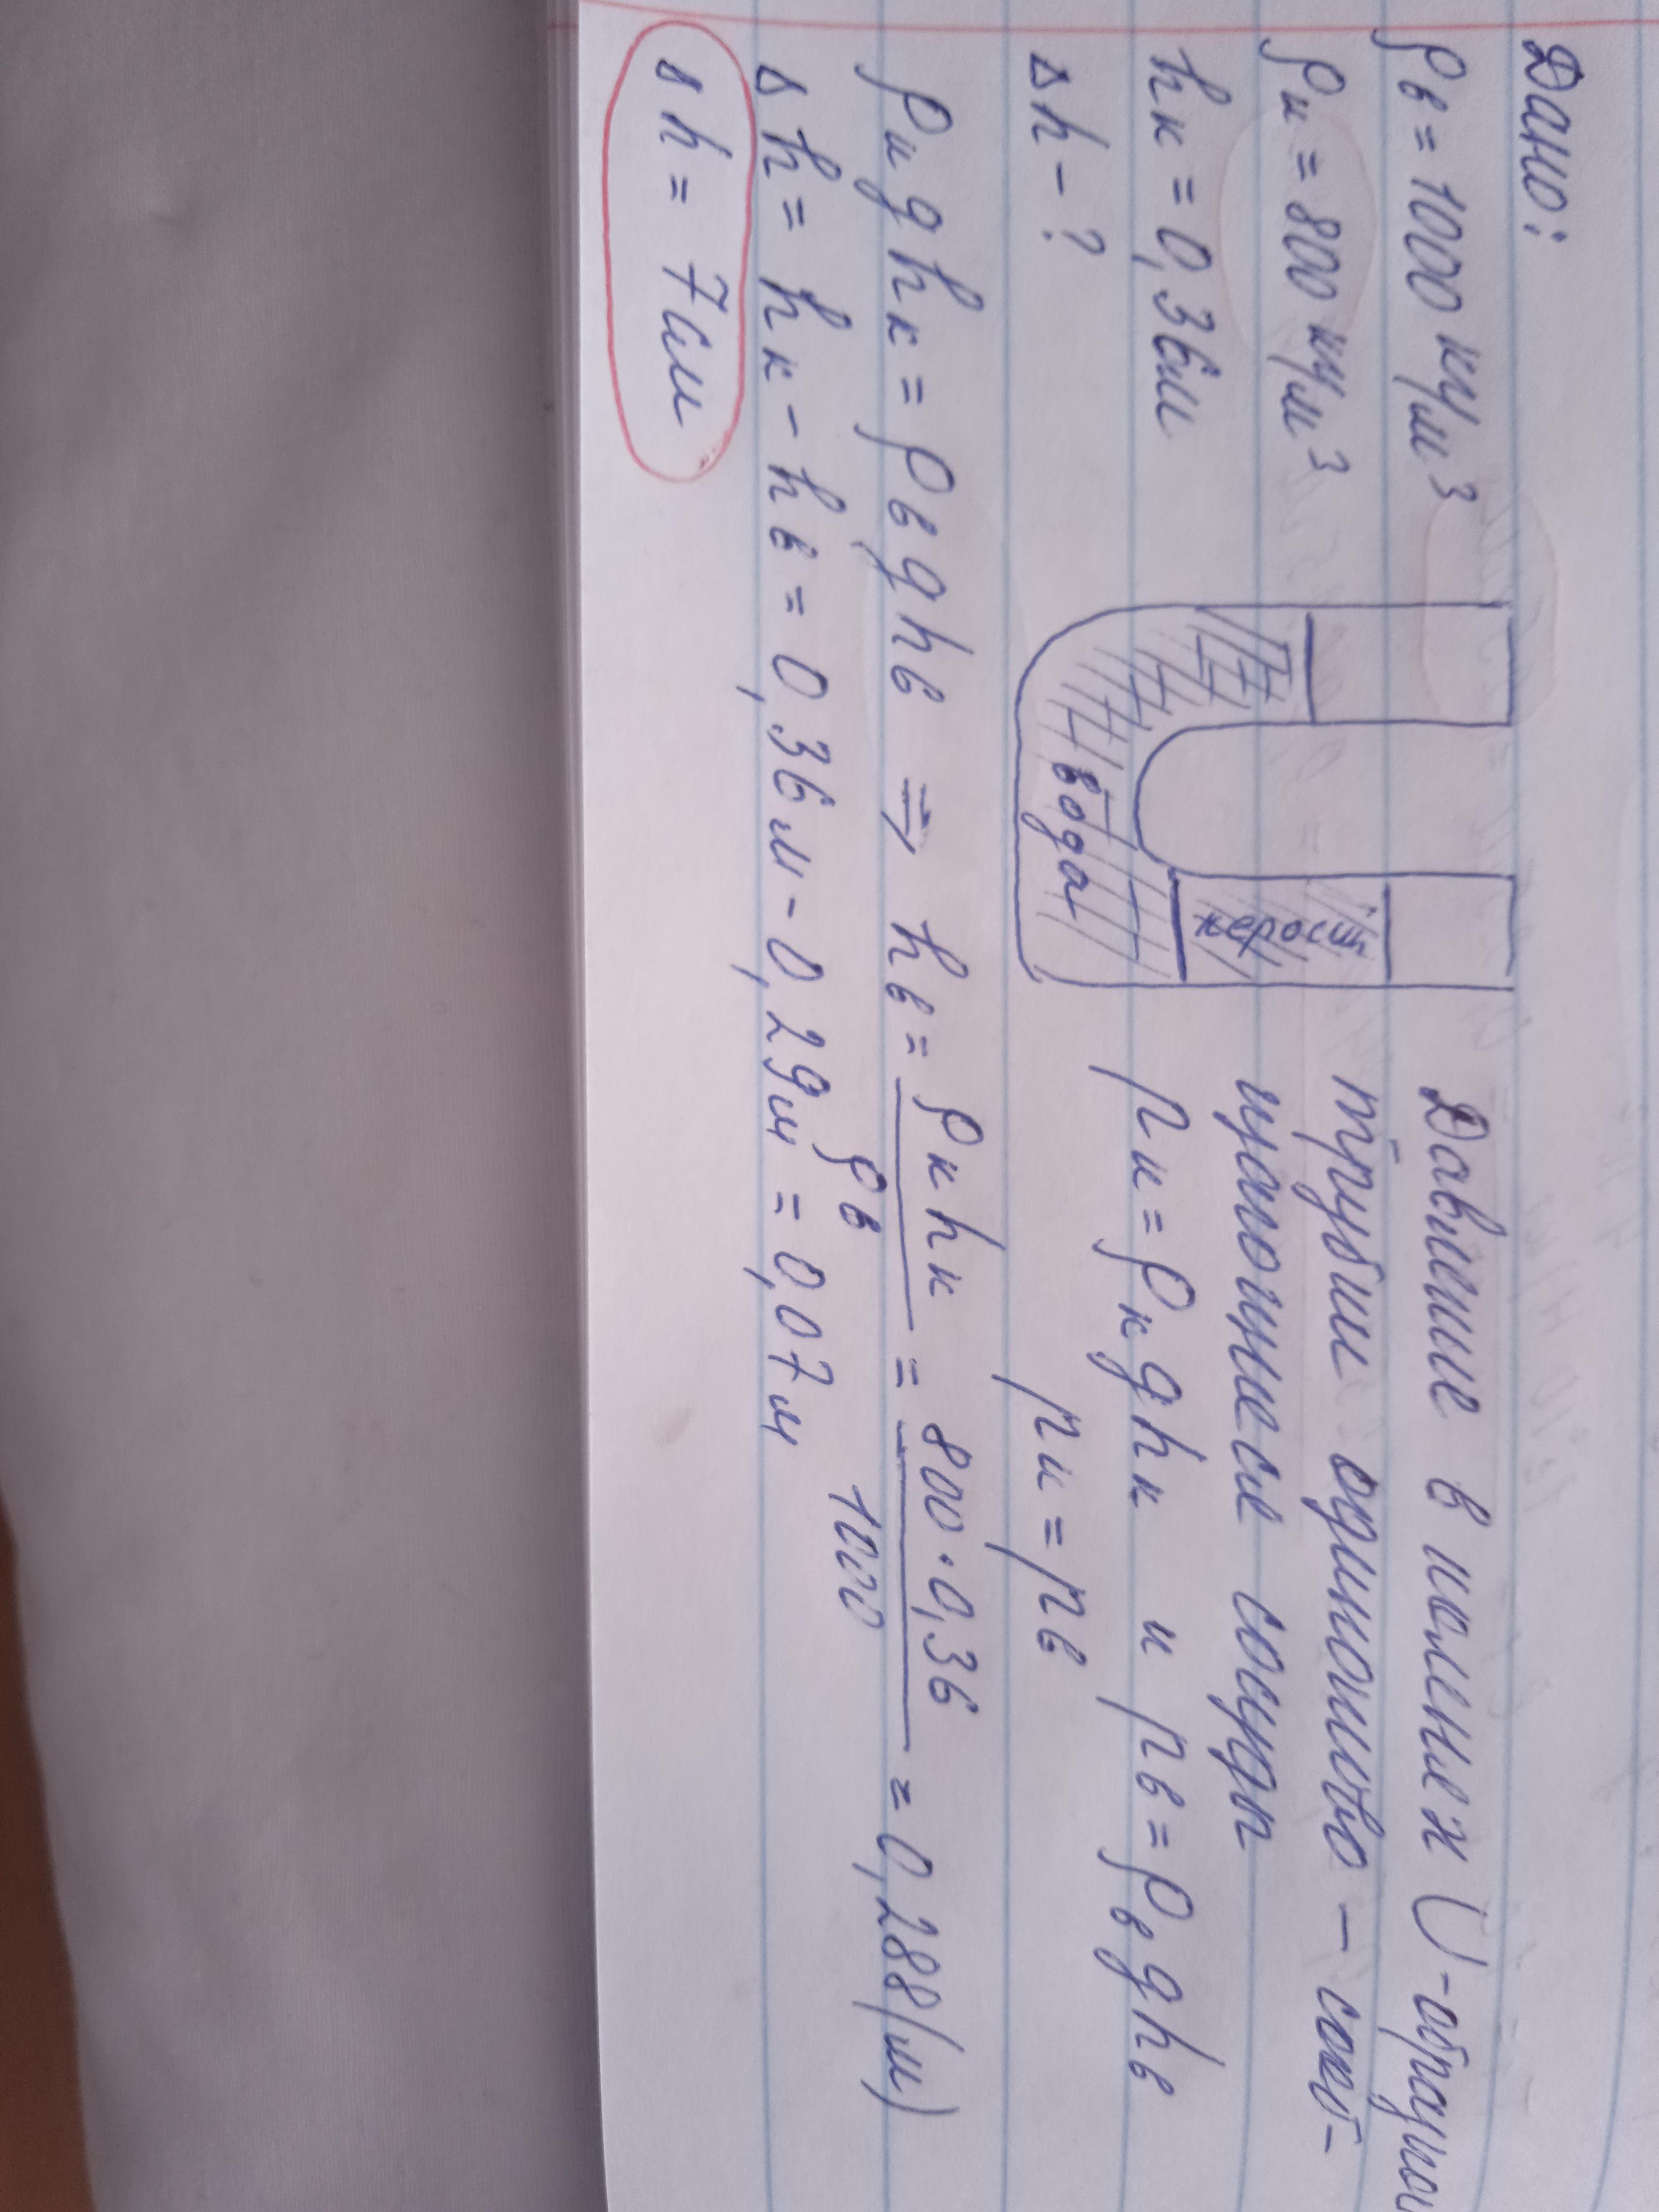 Дано:
ρв = 1000 кг/м³
ρк = 800 кг/м³
hк = 0,36м
Δh - ?
вода
керосин
Давление в коленех U-образной
трубки одинаково - сооб-
щающиеся сосуды
pк = ρк g hк и pв = ρв g hв
pк = pв
ρк g hк = ρв g hв ⇒ hв = ρк hк / ρв = 800 · 0,36 / 1000 = 0,288 (м)
Δh = hк - hв = 0,36м - 0,29м = 0,07м
Δh = 7см